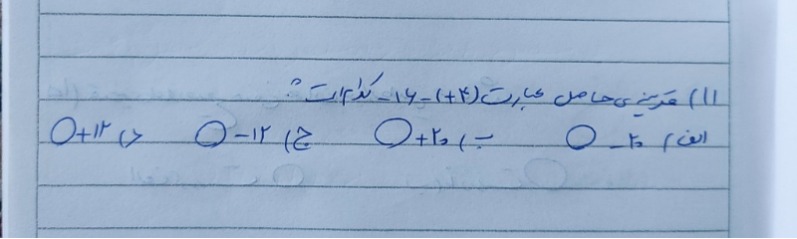 ۱۱) قرینه ی حاصل عبارت (+۴)-۱۶- کدام است؟
الف) -۲۰ ○ ب) +۲۰ ○ ج) -۱۲ ○ د) +۱۲ ○